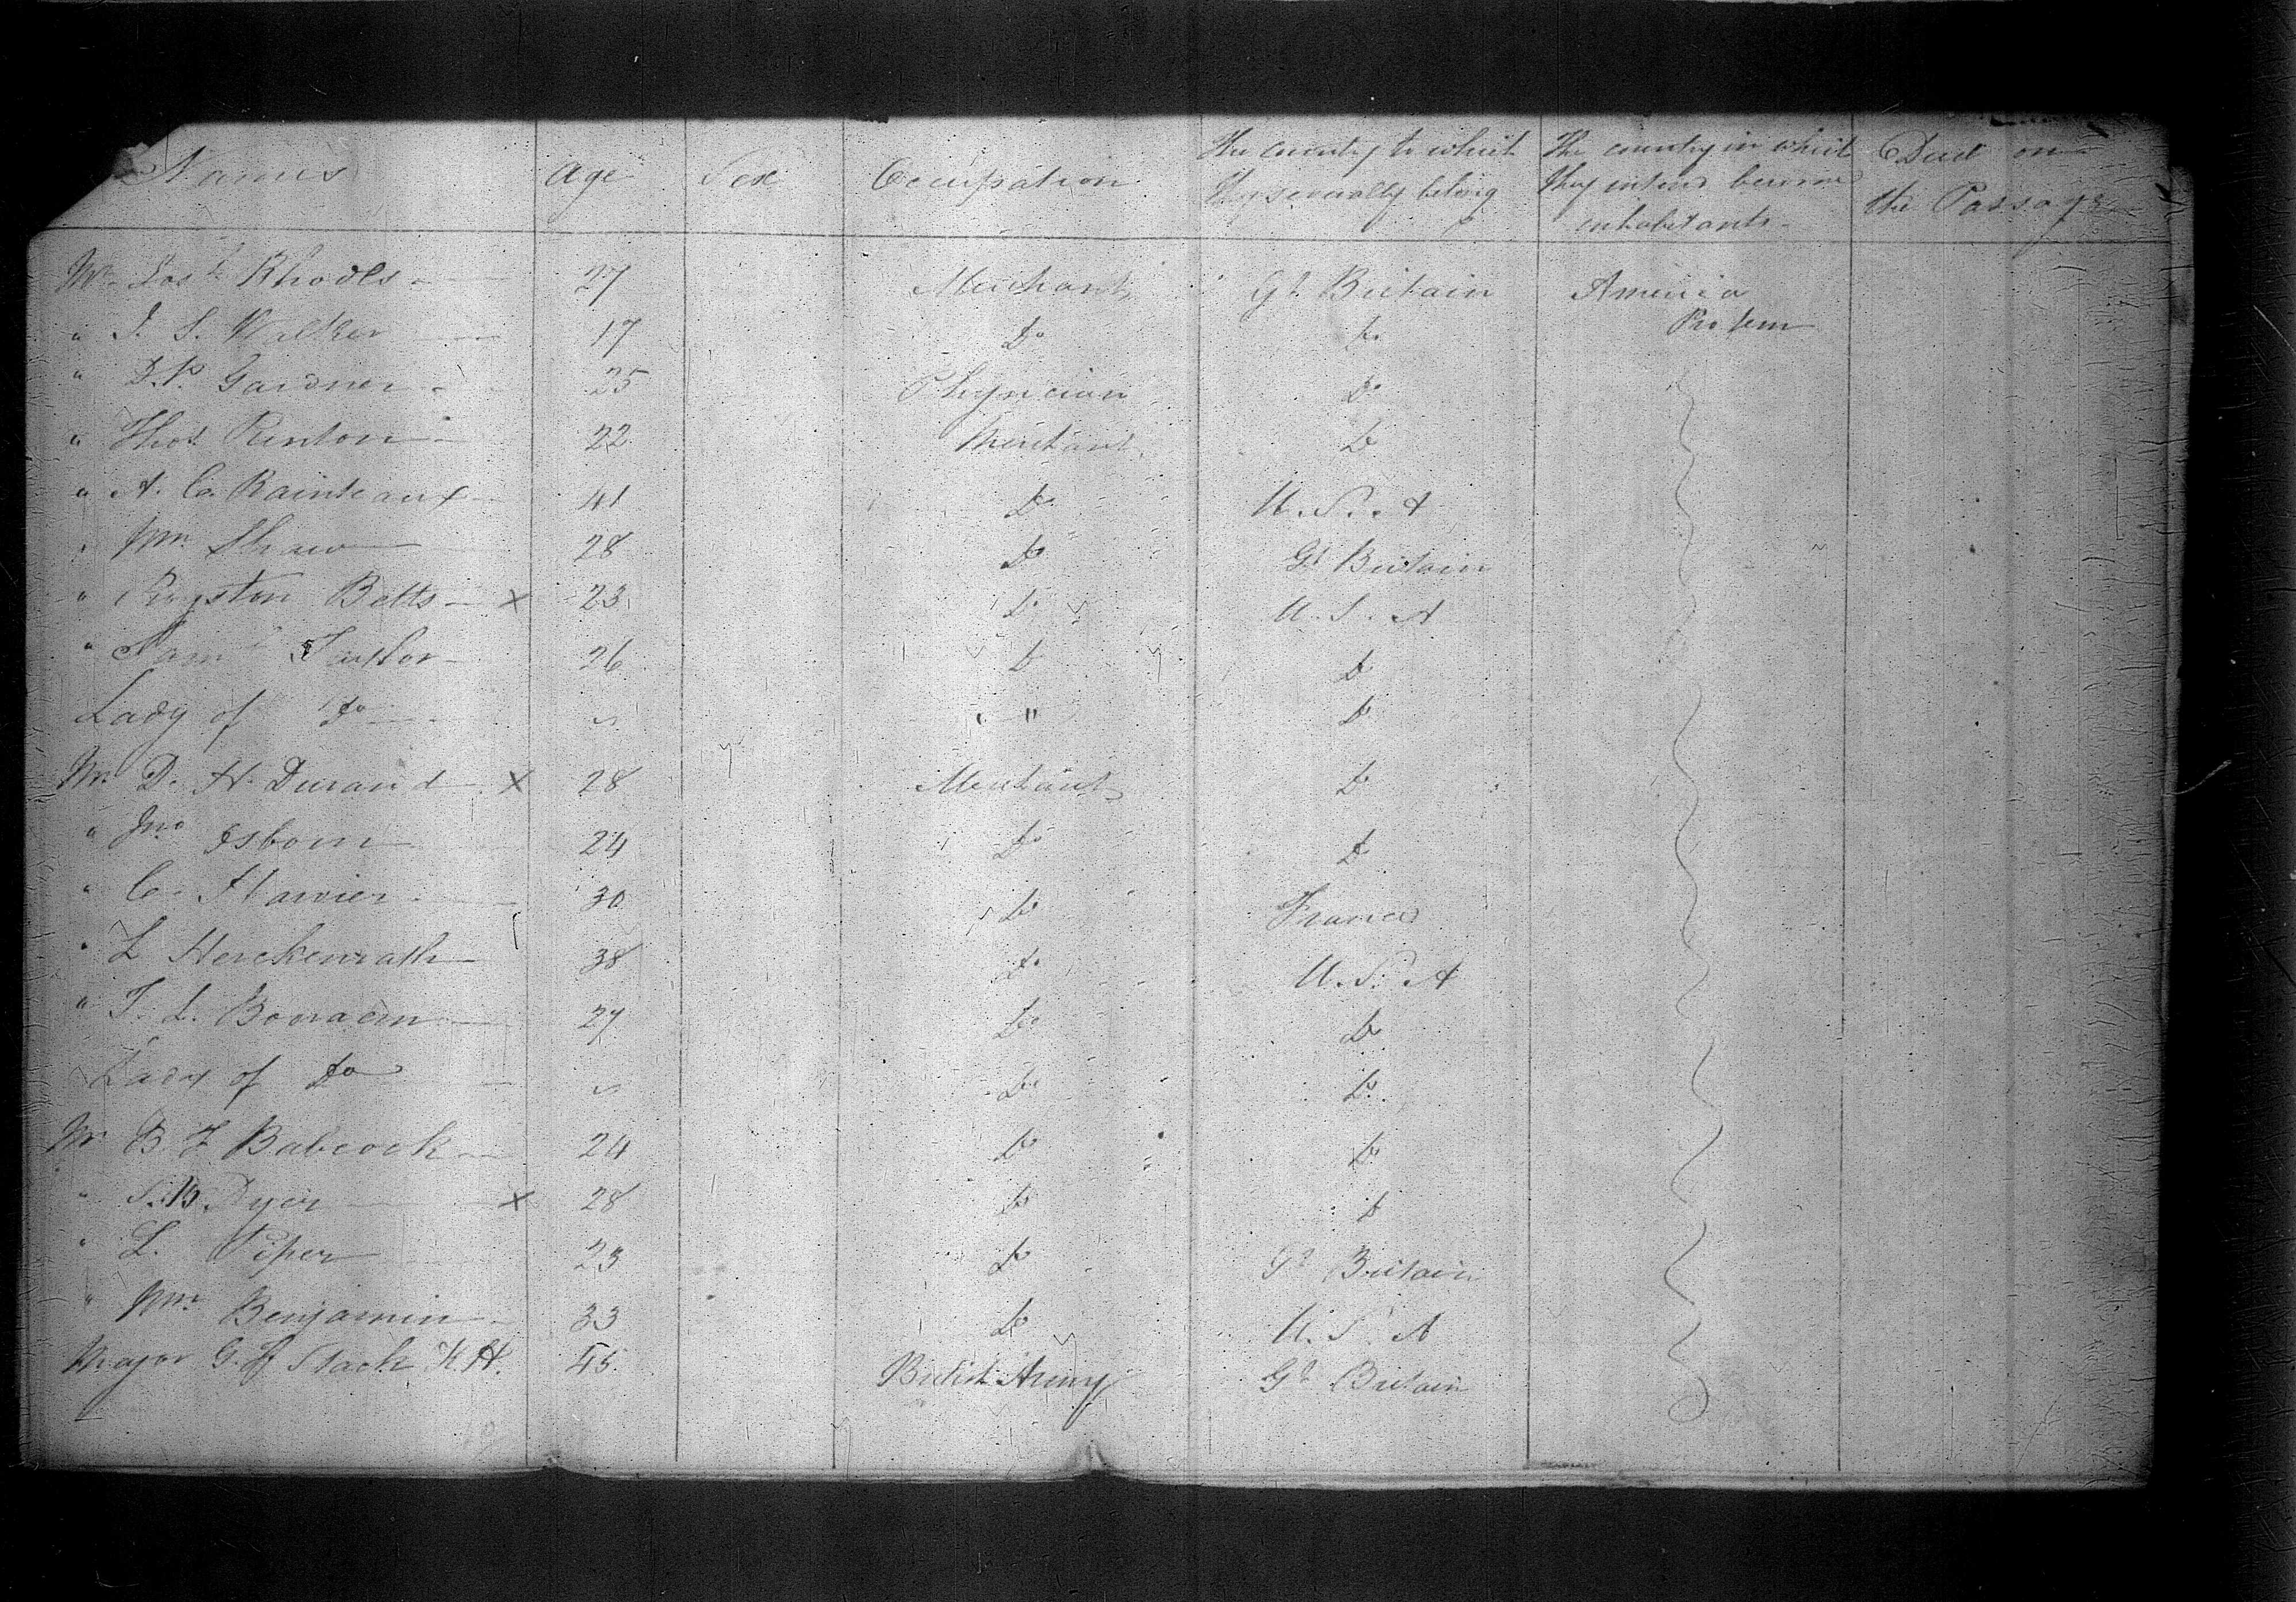 Names Age Sex Occupation The country to which they severally belong The country in which they intend become inhabitants Died on the Passage
Mr Josh Rhodes 27 Merchant Gt Britain America
" J. S. Walker 17 Do Do Protem
" D. P. Gardner 25 Physician Do
" Thos Renton 22 Merchant Do
" A. C. Rainteaux 41 Do U. S. A
" Wm Shaw 28 Do Gt Britain
" Royston Betts x 23 Do U. S. A
" Saml Taylor 26 Do Do
Lady of Do " " Do
Mr D. H. Durand x 28 Merchant Do
" Jno Osborn 24 Do Do
" C. 30 Do France
" L Herckenrath 38 Do U. S. A
" T. L. Booraem 27 Do Do
Lady of Do " Do Do
Mr B. F Babcock 24 Do Do
" S. B. Dyer x 28 Do Do
" L. Piper 23 Do Gt Britain
" Wm Benjamin 33 Do U. S. A
Major G. H Slack K. H. 45 British Army Gt Britain